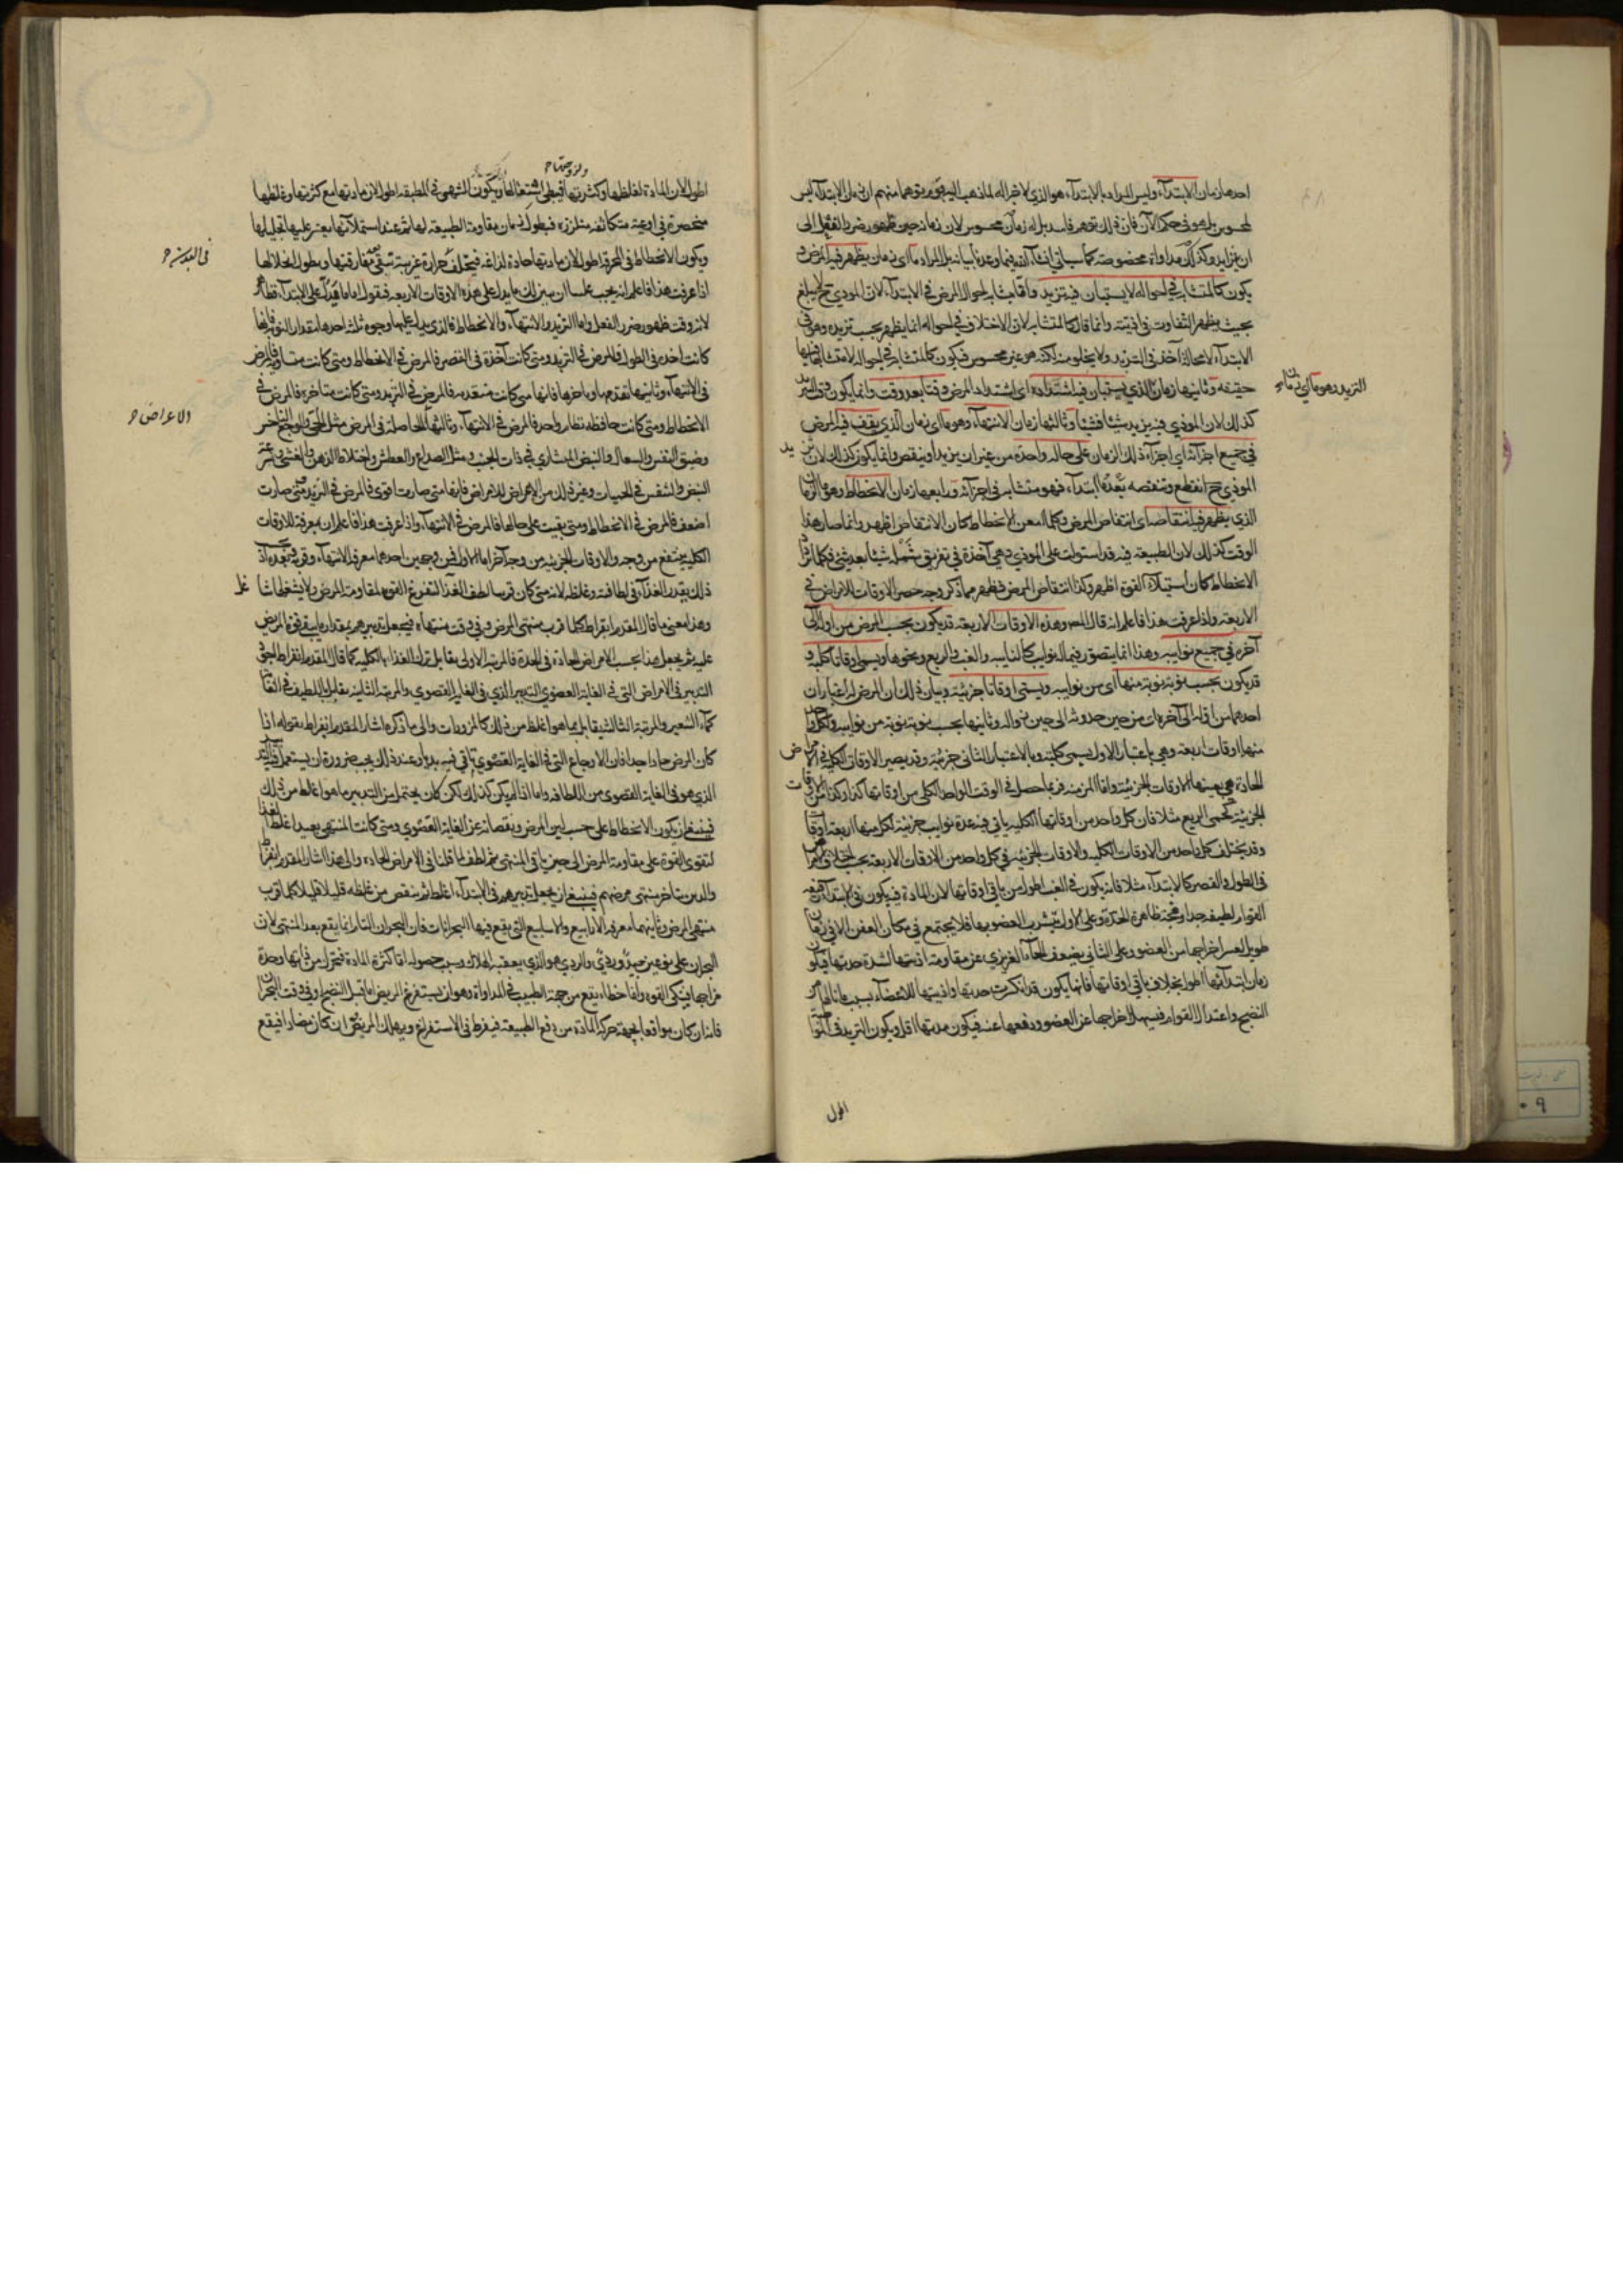 احدها زمان الابتداء وليس المراد بالابتداء هو الذي لا جزء له
بل هو في حكم الآن فان ذلك توهم فاسد بل له زمان محسوس لان زمانه حين ظهور ضرر الفعل الى
ان يتزايد وكذلك مداواة مخصوصة كما سيأتي بل المراد ما اي زمان يظهر فيه المرض و
يكون كالمتشابه في احواله لا يستبان فيه تزيد وانما يتشابه احوال المرض في الابتداء لان الموذي ح لا يبلغ
بحيث يظهر التفاوت في اذيته وانما قال كالمتشابه لان الاختلاف في احواله انما يظهر بحسب تزيده وهو في
الابتداء لا محالة آخذ في التزيد ولا يخلو منه لكنه غير محسوس فيكون كالمتشابه في احواله لا متشابها فيها
حقيقة وثانيها زمان التزيد وهو ما اي زمان الذي يستبان فيه اشتداده اي اشتداد المرض وقتا بعد وقت وانما يكون وقت التزيد
كذلك لان الموذي فيه يزيد شيئا فشيئا وثالثها زمان الانتهاء وهو ما اي زمان الذي يقف فيه المرض
في جميع اجزائه اي اجزاء ذلك الزمان على حالة واحدة من غير ان يزيد او ينقص وانما يكون كذلك لان تزيد
الموذي ح انقطع وتنقصه بعد ما ابتداء فهو متشابه في اجزائه ورابعها زمان الانحطاط وهو ما الزمان
الذي يظهر فيه انتقاصه اي انتقاص المرض وكلما امعن الانحطاط كان الانتقاص اظهر وانما صار هذا
الوقت كذلك لان الطبيعة فيه قد استولت على الموذي وهي آخذة في تفريق شمله شيئا بعد شيء فكلما
الانحطاط كان استيلاء القوة اظهر وكذا انتقاص المرض فظهر مما ذكر وجه حصر الاوقات للامراض في
الاربعة واذا عرفت هذا فاعلم انه قال المص وهذه الاوقات الاربعة قد يكون بحسب المرض من اوله الى
آخره في جميع نوايبه وهذا انما يتصور فيما له نوايب كالنايبة والغب والربع ونحوها ويسمى اوقاتا كلية و
قد يكون بحسب نوبة نوبة منها اي من نوايبه ويسمى اوقاتا جزئية وبيان ذلك ان المرض له اعتباران
احدهما من اوله الى آخره اي من حين حدوثه الى حين زواله وثانيها بحسب نوبة نوبة من نوايبه ولكل واحد
منهما اوقات اربعة وهي باعتبار الاول يسمى كلية وبالاعتبار الثاني جزئية وقد يصير الاوقات الكلية في الامراض
الحادة هي بعينها الاوقات الجزئية واما المزمنة فربما حصل في الوقت الواحد الكلي من اوقاتها كذا وكذا من الاوقات
الجزئية كحمى الربع مثلا فان كل واحد من اوقاتها الكلية يأتي فيه عدة نوايب جزئية لكل منها اربعة اوقات
وقد يختلف كل واحد من الاوقات الكلية والاوقات الجزئية في كل واحد من الاوقات الاربعة بحسب اختلاف الامراض
في الطول والقصر كالابتداء مثلا فانه يكون في الغب اطول من باقي اوقاتها لان المادة فيه يكون في الابتداء رقيقة
القوام لطيفة جدا وفجة ظاهرة الحدة وعلى الاول يتشرب العضو بها فلا يجتمع في مكان العفن الا في زمان
طويل لعسر اخراجها من العضو وعلى الثاني يضعف الحار الغريزي عن مقاومة اذيتها لشدة حدتها فيكون
زمان ابتدائها اطول بخلاف باقي اوقاتها فانها يكون قد انكسرت حدتها واذيتها للاعضاء بسبب ما نالها من
النضج واعتدال القوام فيسهل اخراجها عن العضو ودفعها عنه فيكون مدتها اقل ويكون التزيد في
اطول
التزيد وهو ما اي زمان
اطول لان المادة لغلظها وكثرتها ولزوجتها فيبطي اشتعالها ويكون المنتهى في المطبقة اطول لان مادتها مع كثرتها وغلظها
منحصرة في اوعية متكاثفة متلززة فيطول زمان مقاومة الطبيعة لها ثم عند استيلائها يعسر عليها تحليلها
ويكون الانحطاط في المحرقة اطول لان مادتها حادة لذاعة فيتخلف حرارة غريبة تبقى بعد مفارقتها ويطول انحلالها في البدن
اذا عرفت هذا فاعلم انه يجب علينا ان نبين لك ما يدل على هذه الاوقات الاربعة فنقول اما ما يدل على الابتداء فظاهر
لانه وقت ظهور ضرر الفعل واما التزيد والانتهاء والانحطاط فالذي يدل عليها وجوه ثلثة احدها مقدار النوبة فانها
كانت آخذة في الطول فالمرض في التزيد ومتى كانت آخذة في القصر فالمرض في الانحطاط ومتى كانت متساوية فالمرض
في الانتهاء وثانيها تقدمها وتأخرها فانها متى كانت متقدمة فالمرض في التزيد ومتى كانت متاخرة فالمرض في
الانحطاط ومتى كانت حافظة نظام واحد فالمرض في الانتهاء وثالثها الاعراض الحاصلة في المرض مثل الحمى والوجع الناخس
وضيق النفس والسعال والنبض المنشاري في ذات الجنب ومثل الصداع والعطش واختلاط الذهن والغشي وسرعة
النبض والتنفس في الحميات وغير ذلك من الاعراض للامراض فانها متى صارت اقوى فالمرض في التزيد ومتى صارت
اضعف فالمرض في الانحطاط ومتى بقيت على حالها فالمرض في الانتهاء واذا عرفت هذا فاعلم ان معرفة الاوقات
الكلية ينتفع من وجه والاوقات الجزئية من وجه آخر اما الاول فمن وجهين احدهما معرفة الانتهاء وقربه وبعده اذ
ذلك يقدر الغذاء في لطافته وغلظه لانه متى كان قريبا لطف الغذاء لتفرغ القوة لمقاومة المرض ولا يشغلها
وهذا معنى ما قال المقدم ابقراط كلما قرب منتهى المرض وفي وقت منتهاه فيجعل تدبيرهم بمقدار ما يبقى قوة المريض
عليه ثم يجعل هذا بحسب الامراض الحادة في الحدة فالمرتبة الاولى يقابل بترك الغذاء بالكلية كما قال المقدم ابقراط
التدبير في الامراض التي في الغاية القصوى التدبير الذي في الغاية القصوى والمرتبة الثانية يقابل باللطيف في الغاية
كماء الشعير والمرتبة الثالثة يقابل بما هو اغلظ من ذلك كالمزورات والى ما ذكره اشار المقدم ابقراط بقوله اذا
كان المرض حادا جدا فان الاوجاع التي في الغاية القصوى تأتي فيه بديا وعند ذلك يجب ضرورة ان يستعمل فيه التدبير
الذي هو في الغاية القصوى من اللطافة واما اذا لم يكن كذلك لكن كان يحتمل من التدبير ما هو اغلظ من ذلك
فينبغي ان يكون الانحطاط على حسب لين المرض ونقصانه عن الغاية القصوى ومتى كانت المنتهى بعيدا غلظ الغذاء
لتقوى القوة على مقاومة المرض الى حين يأتي المنتهى ثم لطف لما قلنا في الامراض الحادة والى هذا اشار المقدم ابقراط
والذين يتاخر منتهى مرضهم فينبغي ان يجعل تدبيرهم في الابتداء اغلظ ثم ينقص من غلظه قليلا قليلا كلما قرب
منتهى المرض وثانيهما معرفة الارابيع والاسابيع التي يقع فيها البحرانات فان البحران التام انما يقع بعد المنتهى لان
البحران على نوعين جيد وردي والردي هو الذي يعقبه الهلاك وسبب حصوله اما كثرة المادة فتحرك من ذاتها وحدة
مزاجها فينكي القوة واما خطاء يقع من جهة الطبيب في المداواة وهو ان يستفرغ المريض اما قبل النضج او في وقت البحران
فانه ان كان موافقا لجهة حركة المادة من دفع الطبيعة فيفرط في الاستفراغ ويهلك المريض وان كان مضادا فيقع
في البدن
الاعراض